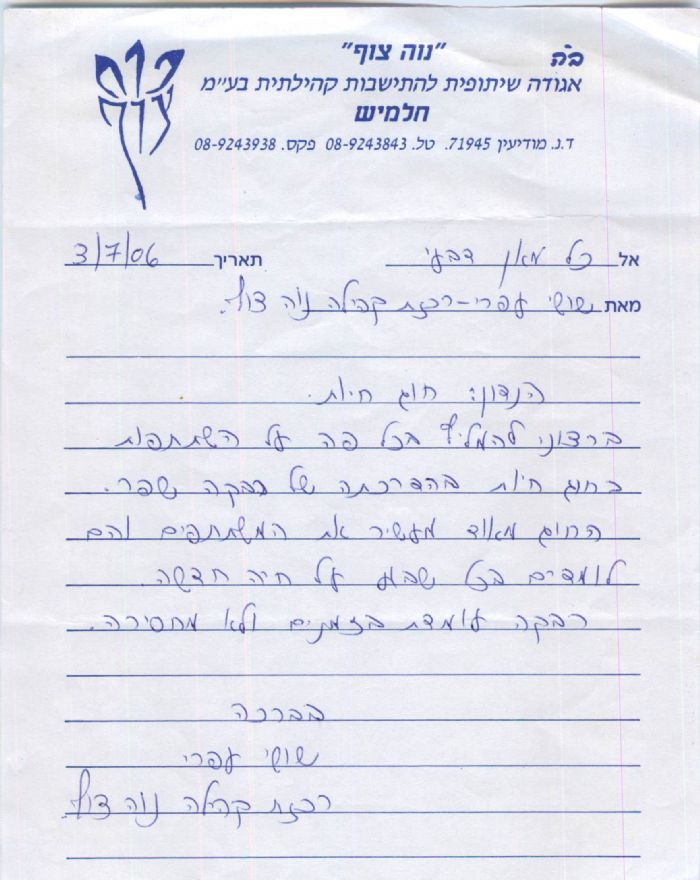 ב"ה
"נוה צוף"
אגודה שיתופית להתישבות קהילתית בע"מ
חלמיש
ד.נ. מודיעין 71945. טל. 08-9243843 פקס. 08-9243938
אל כל מאן דבעי תאריך 3/7/06
מאת שושי עפרי - רכזת קהילה נוה צוף.
הנדון: חוג חיות.
ברצוני להמליץ בכל פה על השתתפות
בחוג חיות בהדרכתה של רבקה שפר.
החוג מאוד מעשיר את המשתתפים והם
לומדים בכל שבוע על חיה חדשה.
רבקה עומדת בזמנים ולא מחסירה.
בברכה
שושי עפרי
רכזת קהילה נוה צוף.